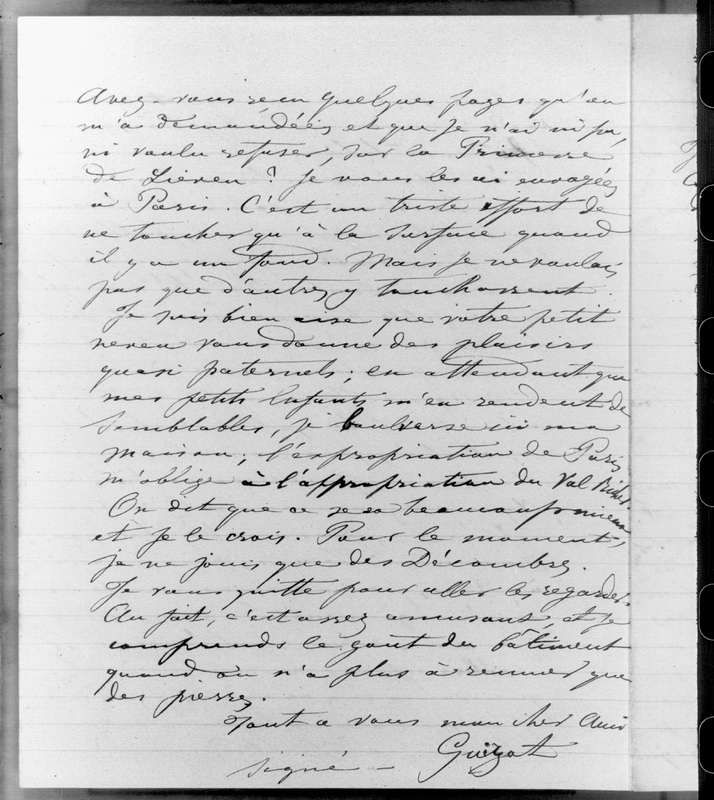 Avez-vous reçu quelques pages qu'on
m'a demandées et que je n'ai ni pu,
ni voulu refuser, sur la Princesse
de Lieven ? Je vous les ai envoyées
à Paris. C'est un triste effort de
ne toucher qu'à la surface quand
il y a un fond. Mais je ne voulais
pas que d'autres y touchassent.
Je suis bien aise que votre petit
neveu vous donne des plaisirs
quasi paternels ; en attendant que
mes petits enfants m'en rendent de
semblables, je boulverse ici ma
maison ; l'expropriation de Paris
m'oblige à l'appropriation du Val Richer.
On dit que ce sera beaucoup mieux
et je le crois. Pour le moment,
je ne jouis que des Décombres.
Je vous quitte pour aller les regarder.
Au fait, c'est assez amusant, et je
comprends le goût du bâtiment
quand on n'a plus à remuer que
des pierres.
Tout à vous mon cher Ami
signé - Guizot